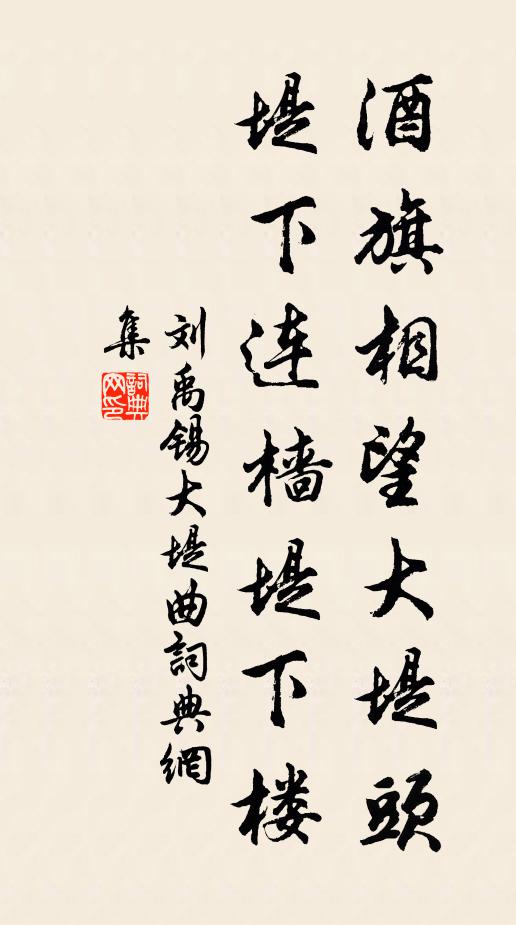 酒旗相望大堤頭
堤下连樯堤下楼
刘禹锡大堤曲詞典網
集
詞典网印